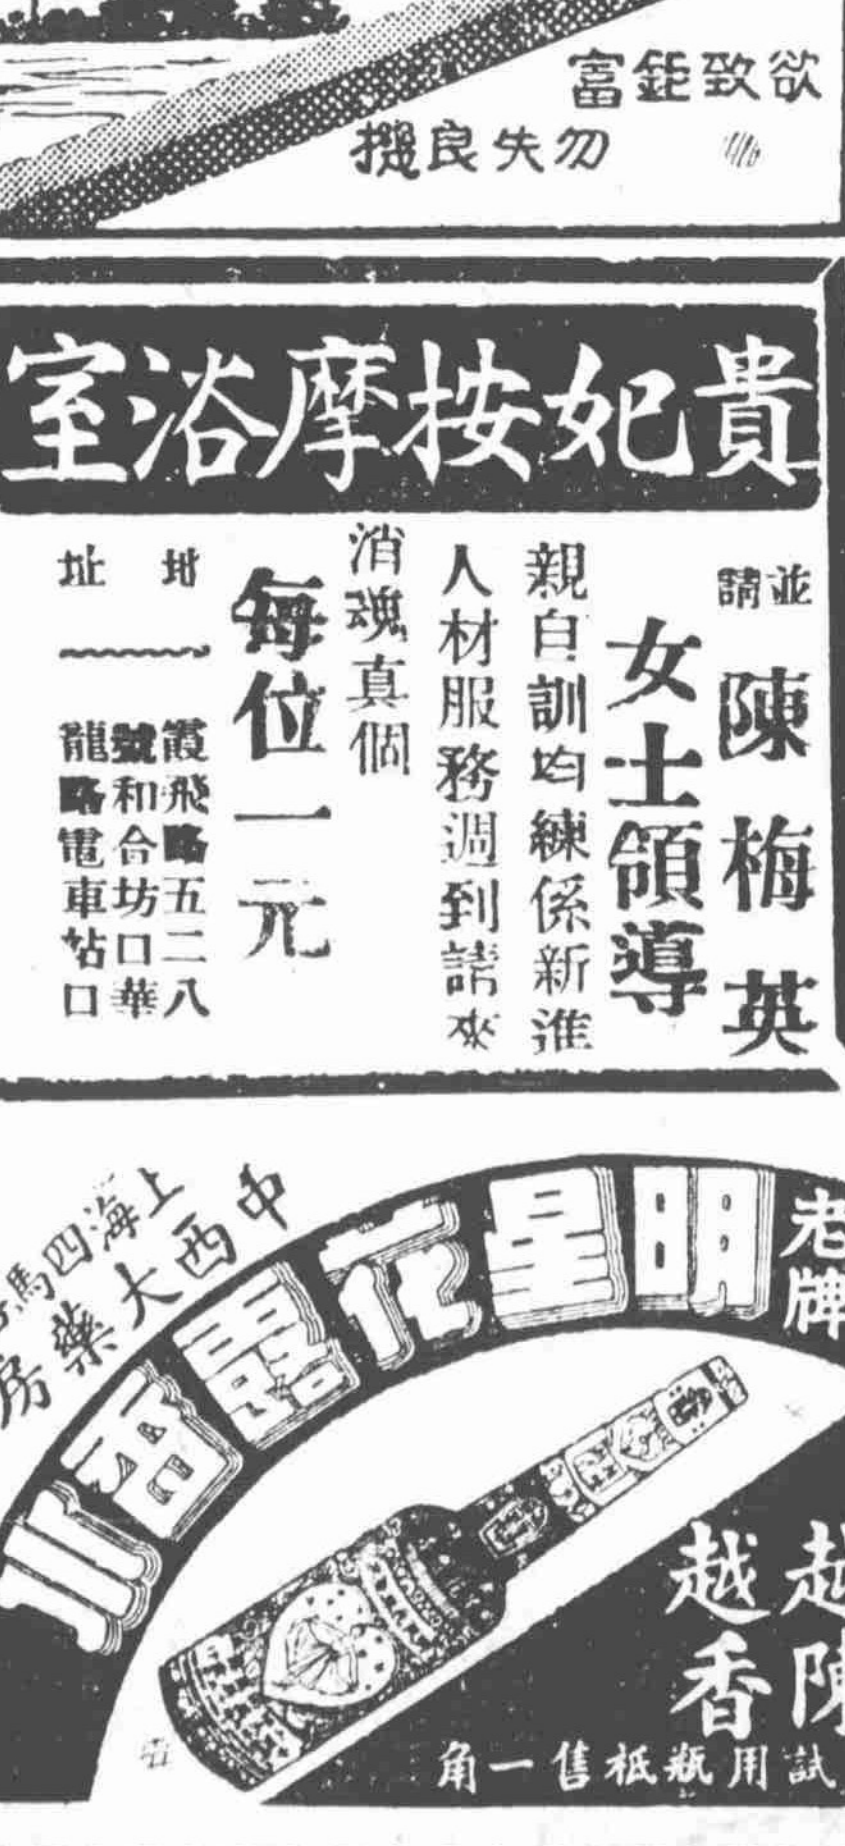 欲致鉅富
勿失良機
貴妃按摩浴室
並請
陳梅英
女士領導
親自訓均練係新進
人材服務週到請來
消魂真個
每位一元
地址
霞飛路五二八
號和合坊口華
龍路電車站口
老牌
明星花露香水
上海四馬
中西大藥房
越陳
越香
試用瓶祗售一角